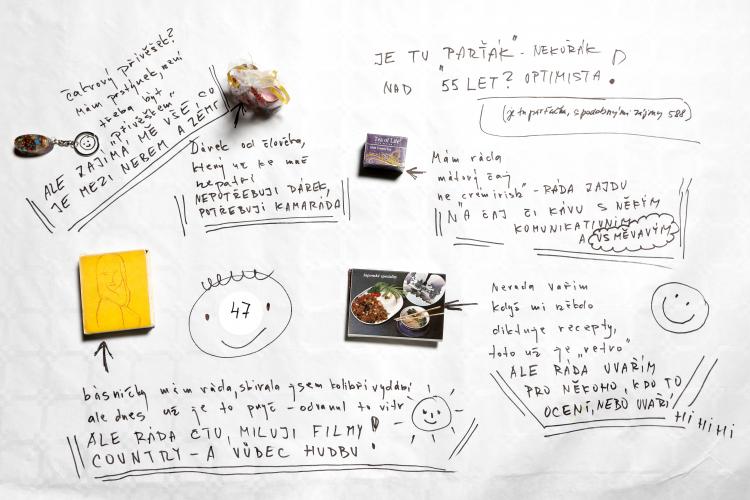 čakrový přívěšek?
Mám prstýnek, není
třeba být
"přívěškem"
ALE ZAJÍMÁ MĚ VŠE CO
JE MEZI NEBEM A ZEMÍ
Dárek od člověka,
který už ke mně
nepatří
NEPOTŘEBUJI DÁREK,
POTŘEBUJI KAMARÁDA
JE TU "PARŤÁK" - NEKUŘÁK
NAD 55 LET? OPTIMISTA!
(je tu parťačka, s podobnými zájmy 588)
Tea of Life
Mám ráda
mátový čaj
ne "crémirish" - RÁDA ZAJDU
NA ČAJ ČI KÁVU S NĚKÝM
KOMUNIKATIVNÍM
A USMĚVAVÝM
47
Japonské speciality
Nerada vařím
když mi někdo
diktuje recepty,
toto už je "retro"
ALE RÁDA UVAŘÍM
PRO NĚKOHO, KDO TO
OCENÍ, NEBO UVAŘÍ
HiHiHi
básničky mám ráda, sbírala jsem kolibří vydání
ale dnes už je to pryč - odvanul to vítr
ALE RÁDA ČTU, MILUJI FILMY!
COUNTRY - A VŮBEC HUDBU!